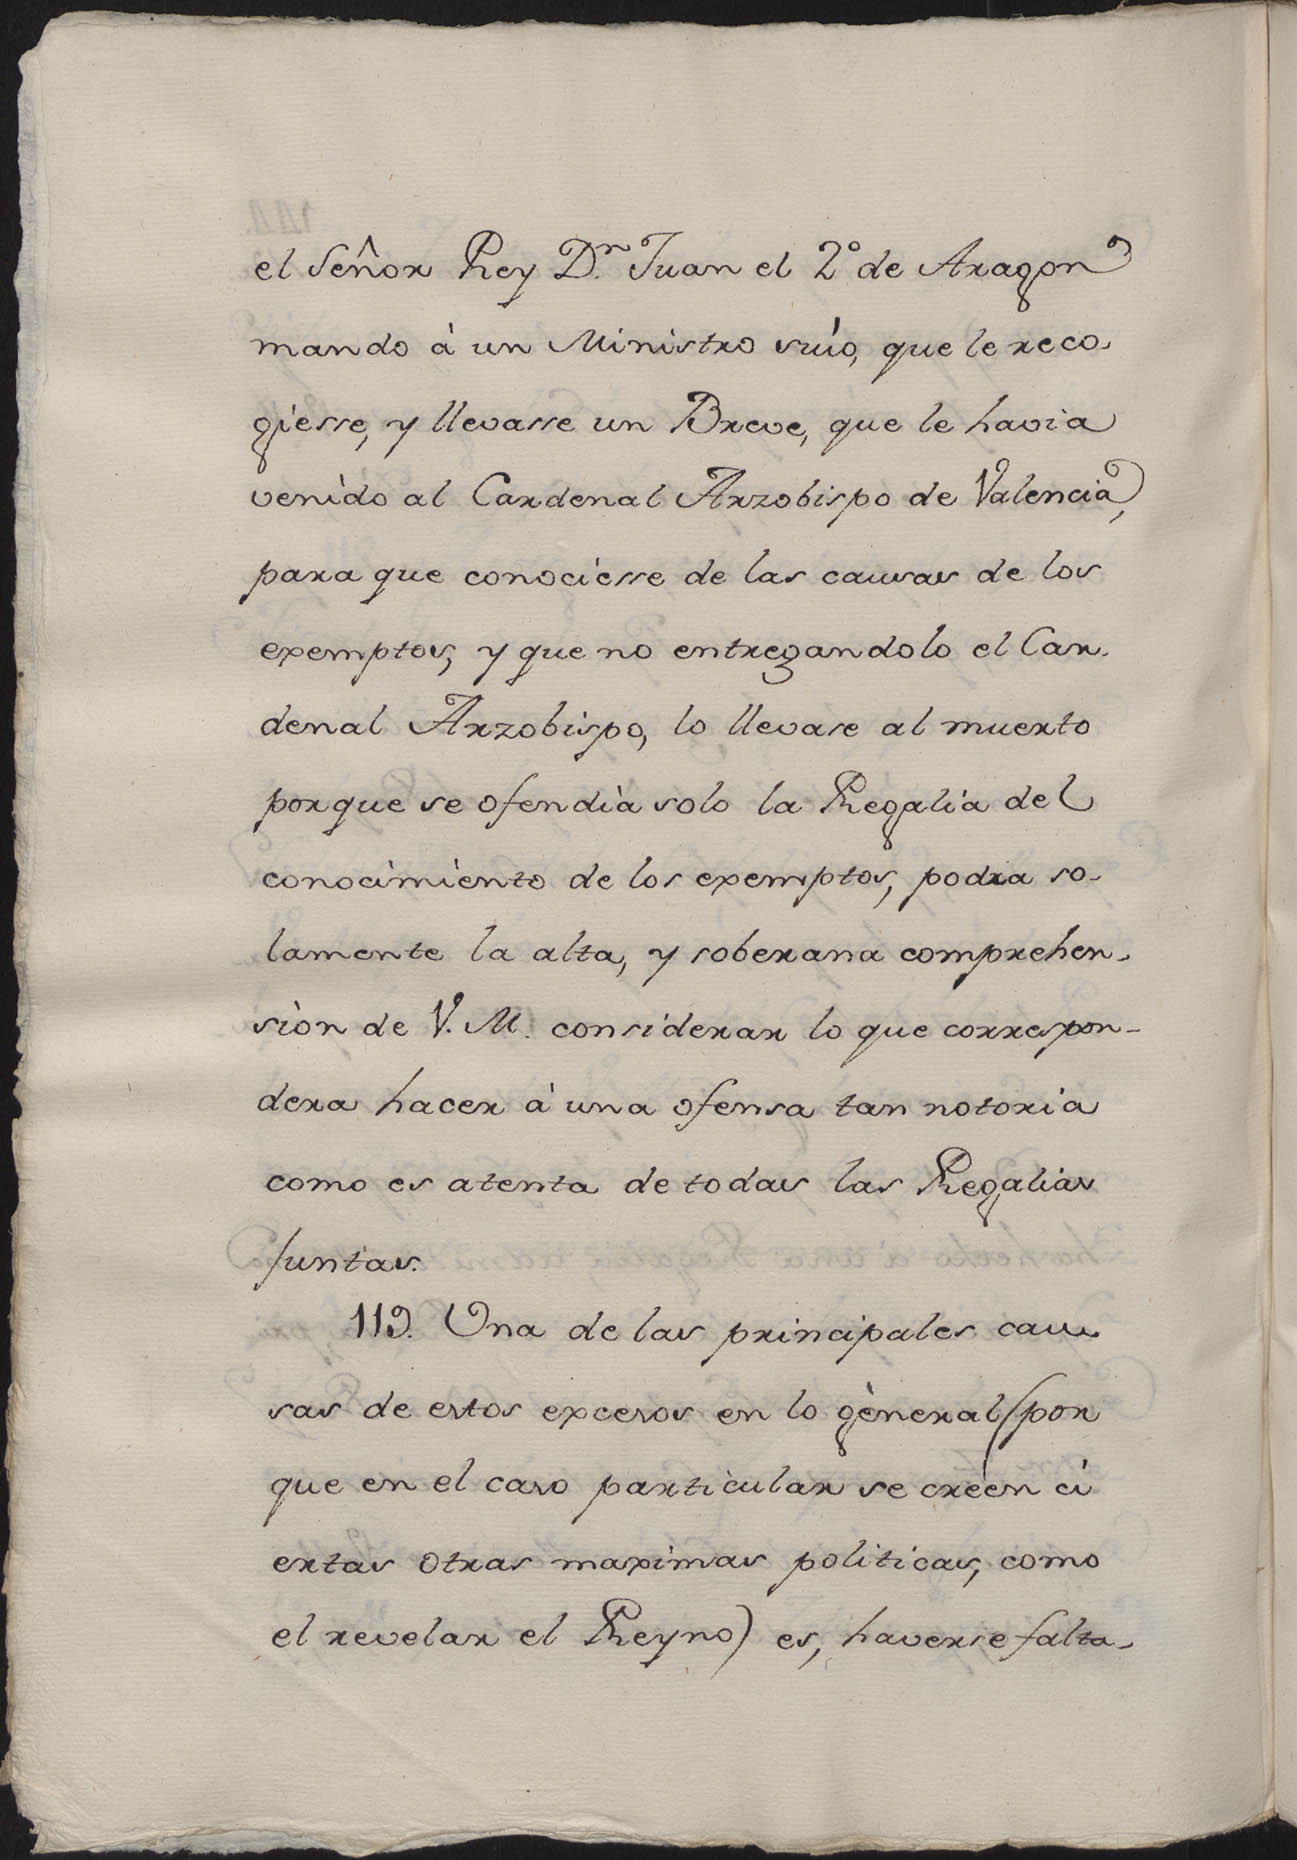 el Señor Rey D.ⁿ Juan el 2º de Aragon
mando à un Ministro suío, que le reco-
giesse, y llevasse un Breve, que le havia
venido al Cardenal Arzobispo de Valencia,
para que conociesse de las causas de los
exemptos, y que no entregandolo el Car-
denal Arzobispo, lo llevase al muerto
porque se ofendia solo la Regalia del
conocimiento de los exemptos, podra so-
lamente la alta, y soberana comprehen-
sion de V. M. considerar lo que correspon-
dera hacer à una ofensa tan notoria
como es atenta de todas las Regalias
Juntas.
119. Una de las principales cau-
sas de estos excesos en lo general (por
que en el caso particular se creen ci
ertas otras maximas politicas, como
el revelar el Reyno) es, haverse falta-